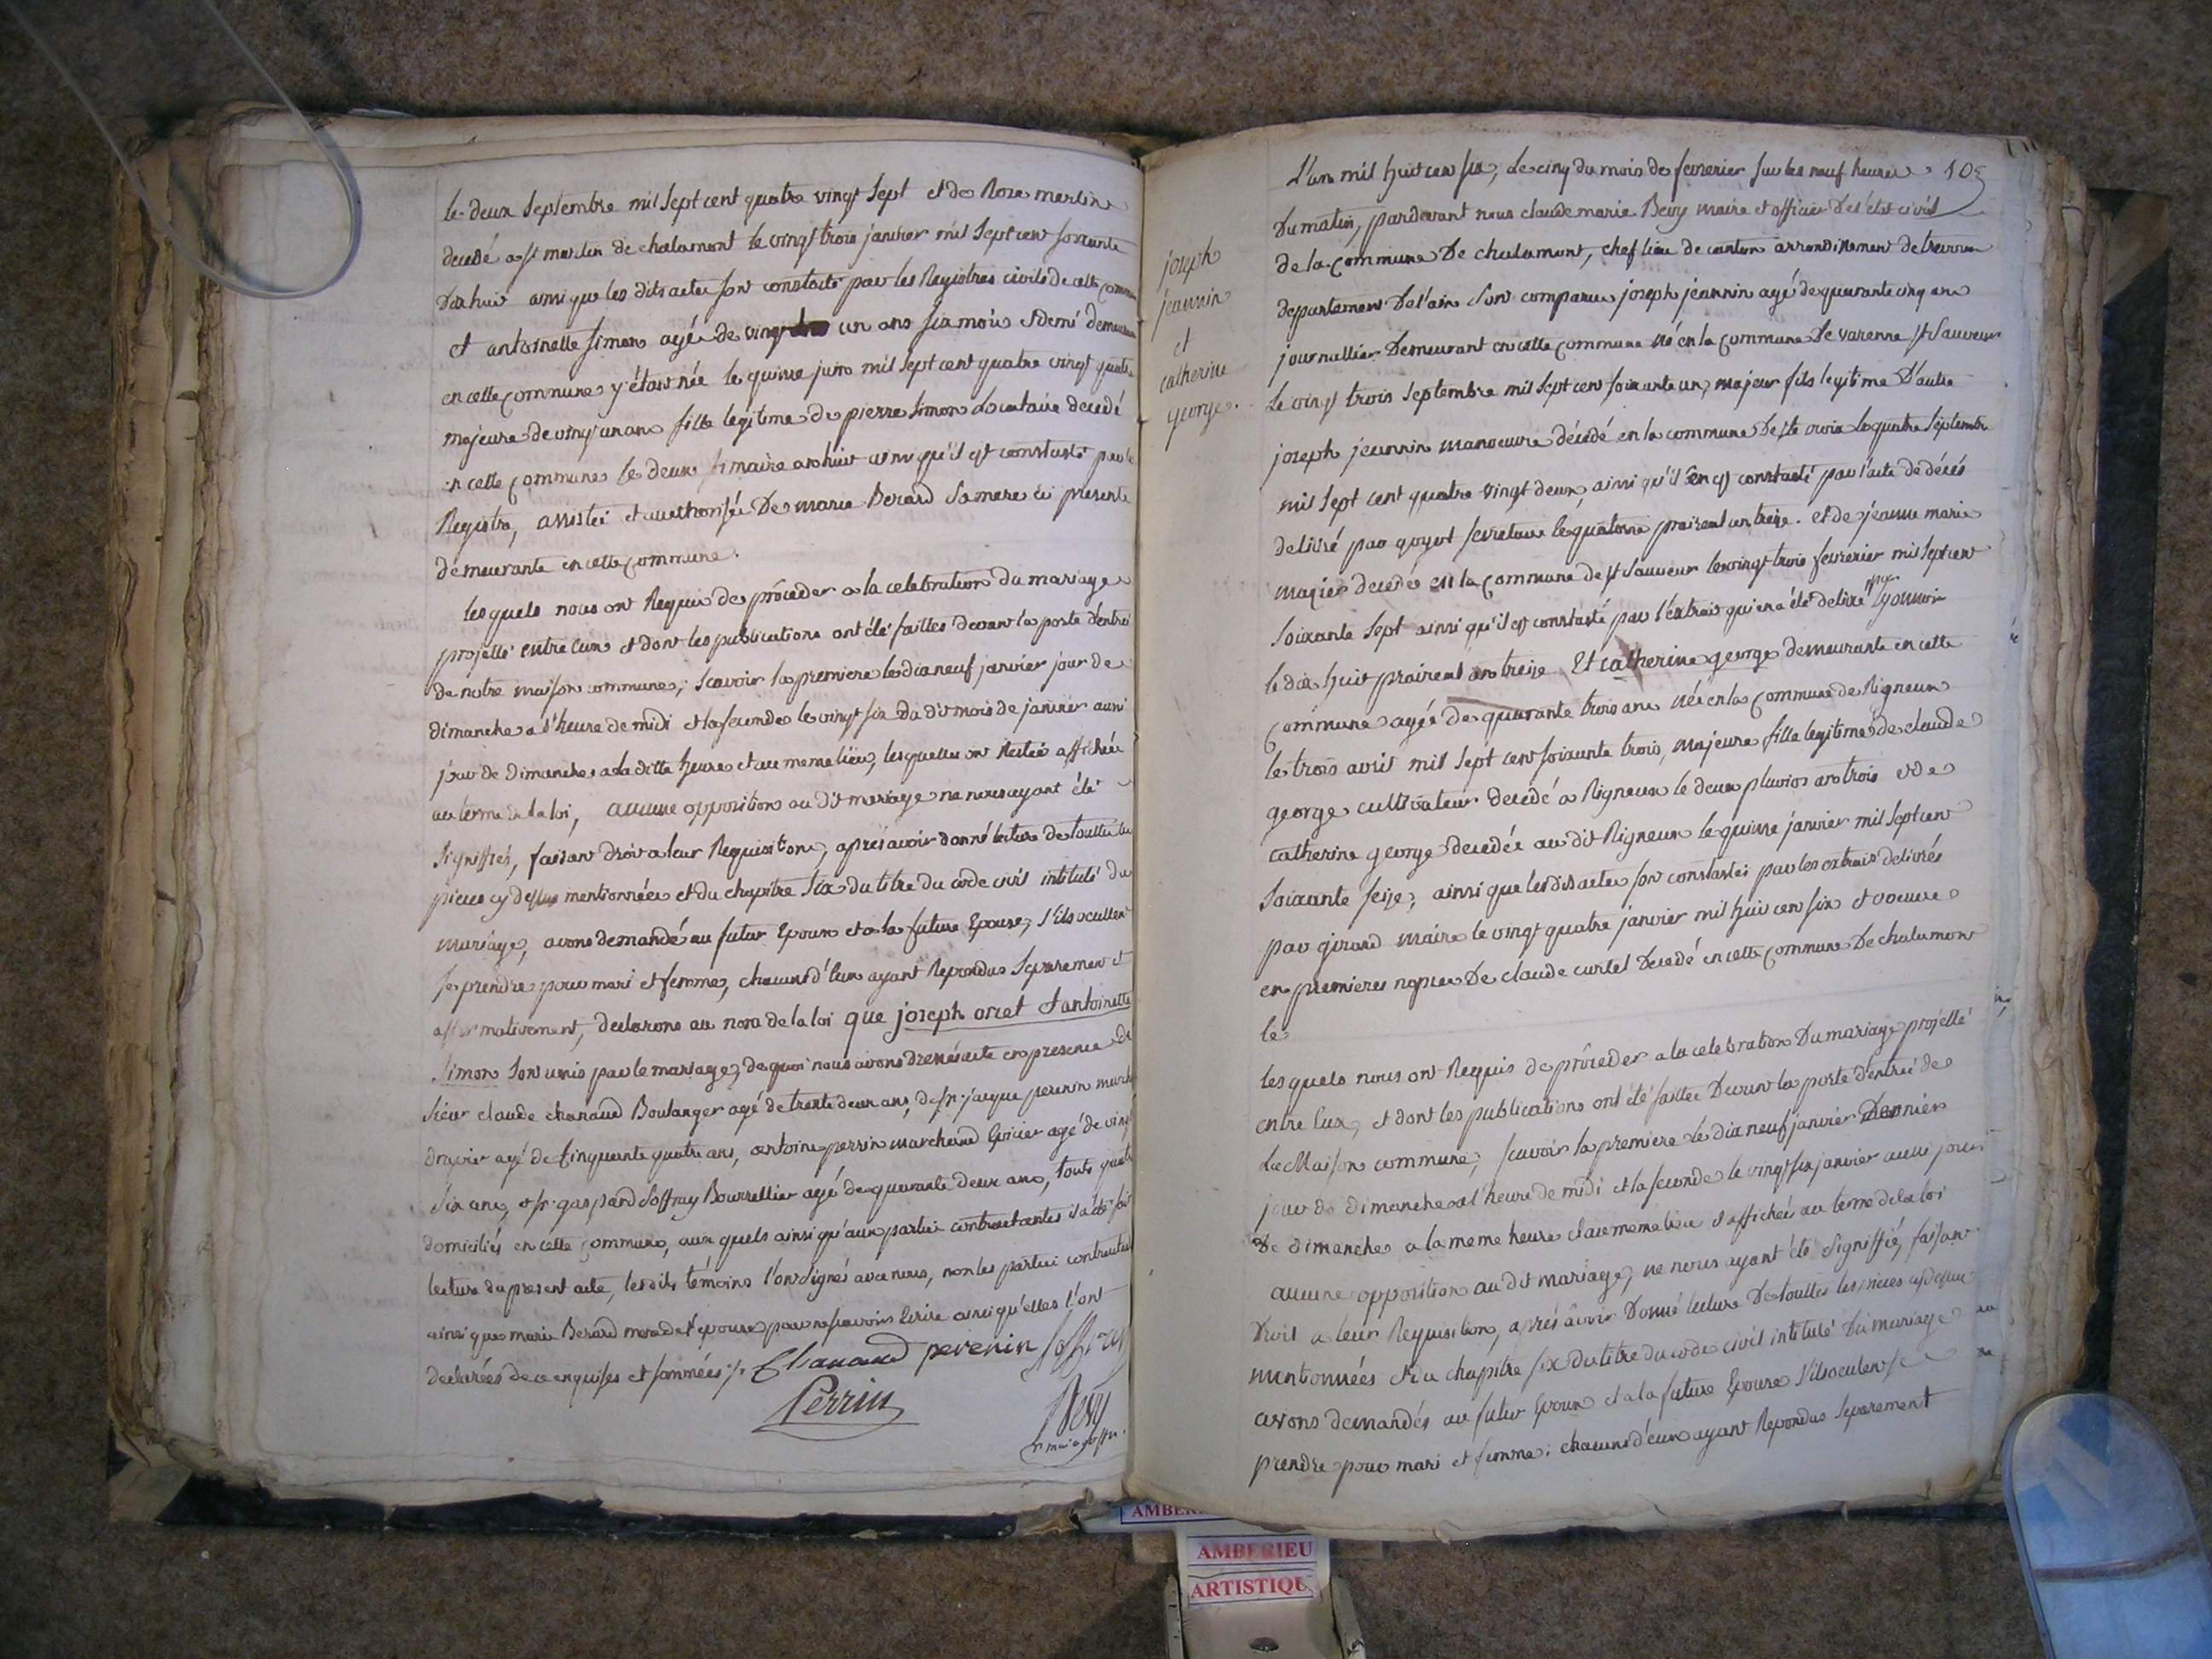 le deux Septembre mil Sept cent quatre vingt Sept et de Roze merlin
decedé a st martin de chalamont le vingt trois janvier mil Sept cent soixante
Dix huit ainsi que les dits actes sont constatés par les Registres civils de cette commune
et antoinette Simon agée de vingt un ans six mois et demi demeurant
en cette commune y étant née le quinze juin mil sept cent quatre vingt quatre
majeure de vingt un ans fille legitime de pierre Simon Locataire decedé
en cette commune le deux frimaire an huit ainsi qu'il est constasté par le
Registre, assistée et aucthorisée De marie Berard Sa mere ici presente
demeurante en cette commune.
Lesquels nous ont Requis de proceder a la celebration du mariage
projetté entre Eux et dont les publications ont été faittes devant la porte d'entrée
de nôtre maison commune, scavoir la premiere le dix neuf janvier jour de
dimanche a l'heure de midi et la seconde le vingt six du dit mois de janvier aussi
jour de Dimanche a la ditte heure et au meme lieu, lesquelles ont Restée affichée
au terme de la loi, aucune opposition au dit mariage ne nous ayant été
Signiffiés, faisant droit a leur Requisitions, après avoir donné lecture de touttes les
pieces cy dessus mentionnées et du chapitre Six du titre du code civil intitulé du
mariage, avons demandé au futur Epoux et a la future Epouse, s'ils veullent
se prendre pour mari et femme, chacuns d'Eux ayant Repondus Separement et
affirmativement, declarons au nom de la loi que joseph orcet et antoinette
Simon sont unis par le mariage, de quoi nous avons dressés acte en presence de
Sieur claude chanaud Boulanger agé de trente deux ans, de sr. jacque perenin march
drapier agé de Cinquante quatre ans, antoine perrin marchand Epicier agé de vingt
Six ans, et sr. gaspard Soffray Bourrellier agé de quarante deux ans, touts quatre
domiciliés en cette commune, aux quels ainsi qu'aux parties contractantes il a été fait
lecture du present acte, lesdits témoins l'ont signés avec nous, non les parties contractantes
ainsi que marie Berard mere de l'epouse pour ne scavoir Ecrire ainsi qu'elles l'ont
declarées de ce enquises et sommées ./. Chanaud perenin Soffray
Perrin
Bevy
L'an mil huit cent six, le cinq du mois de fevrerier sur les neuf heures 105
Du matin, pardevant nous claude marie Bevy maire et officier De l'etat civil
de la commune De chalamont, chef lieu de canton arrondissement de trevoux
departement De l'ain Sont comparus joseph jeannin agé de quarante cinq ans
journallier Demeurant en cette commune né en la commune De varenne st Sauveur
Le vingt trois Septembre mil Sept cent soixante un, majeur fils legitime D'autre
joseph jeannin manoeuvre décédé en la commune De ste croix le quatre Septembre
mil Sept cent quatre vingt deux, ainsi qu'il en est constasté par l'acte de décés
delivré par goyot secretaire le quatorze prairial an treize. et de jeanne marie
magies decedée en la commune de st Sauveur le vingt trois fevrerier mil Sept cent
Soixante Sept ainsi qu'il est constasté par l'extrait qui en a été delivré par Lyonnois
le dix huit prairial an treize. Et catherine george demeurante en cette
commune agée de quarante trois ans née en la commune de Rigneux
le trois avril mil Sept cent soixante trois, Majeure fille legitime de claude
george cultivateur decedé a Rigneux le deux pluvios an trois et de
catherine george decedée au dit Rigneux le quinze janvier mil Sept cent
Soixante Seize, ainsi que les dits actes sont constastés par les extraits delivrés
par girard maire le vingt quatre janvier mil huit cent six et veuve
en premieres nopces De claude curtet Decedé en cette commune De chalamont
le
Lesquels nous ont Requis de proceder a la celebration Du mariage projetté
entre Eux, et dont les publications ont été faittes Devant la porte d'entrée de
La Maison commune, scavoir la premiere Le dix neuf janvier Dernier
jour de dimanche a l'heure de midi et la seconde le vingt six janvier aussi jour
De dimanche a la meme heure et au meme lieu et affichée au terme de la loi
aucune opposition au dit mariage, ne nous ayant été Signiffié, faisant
Droit a leur Requisition, aprés avoir Donné lecture De touttes les pieces cy dessus
mentionnées et Du chapitre six du titre du code civil intitulé Du mariage
avons demandés au futur Epoux et a la future Epouse s'ils veulent se
prendre pour mari et femme: chacuns d'eux ayant Repondus Separement
joseph
jeannin
et
catherine
george.
AMBERIEU
ARTISTIQU